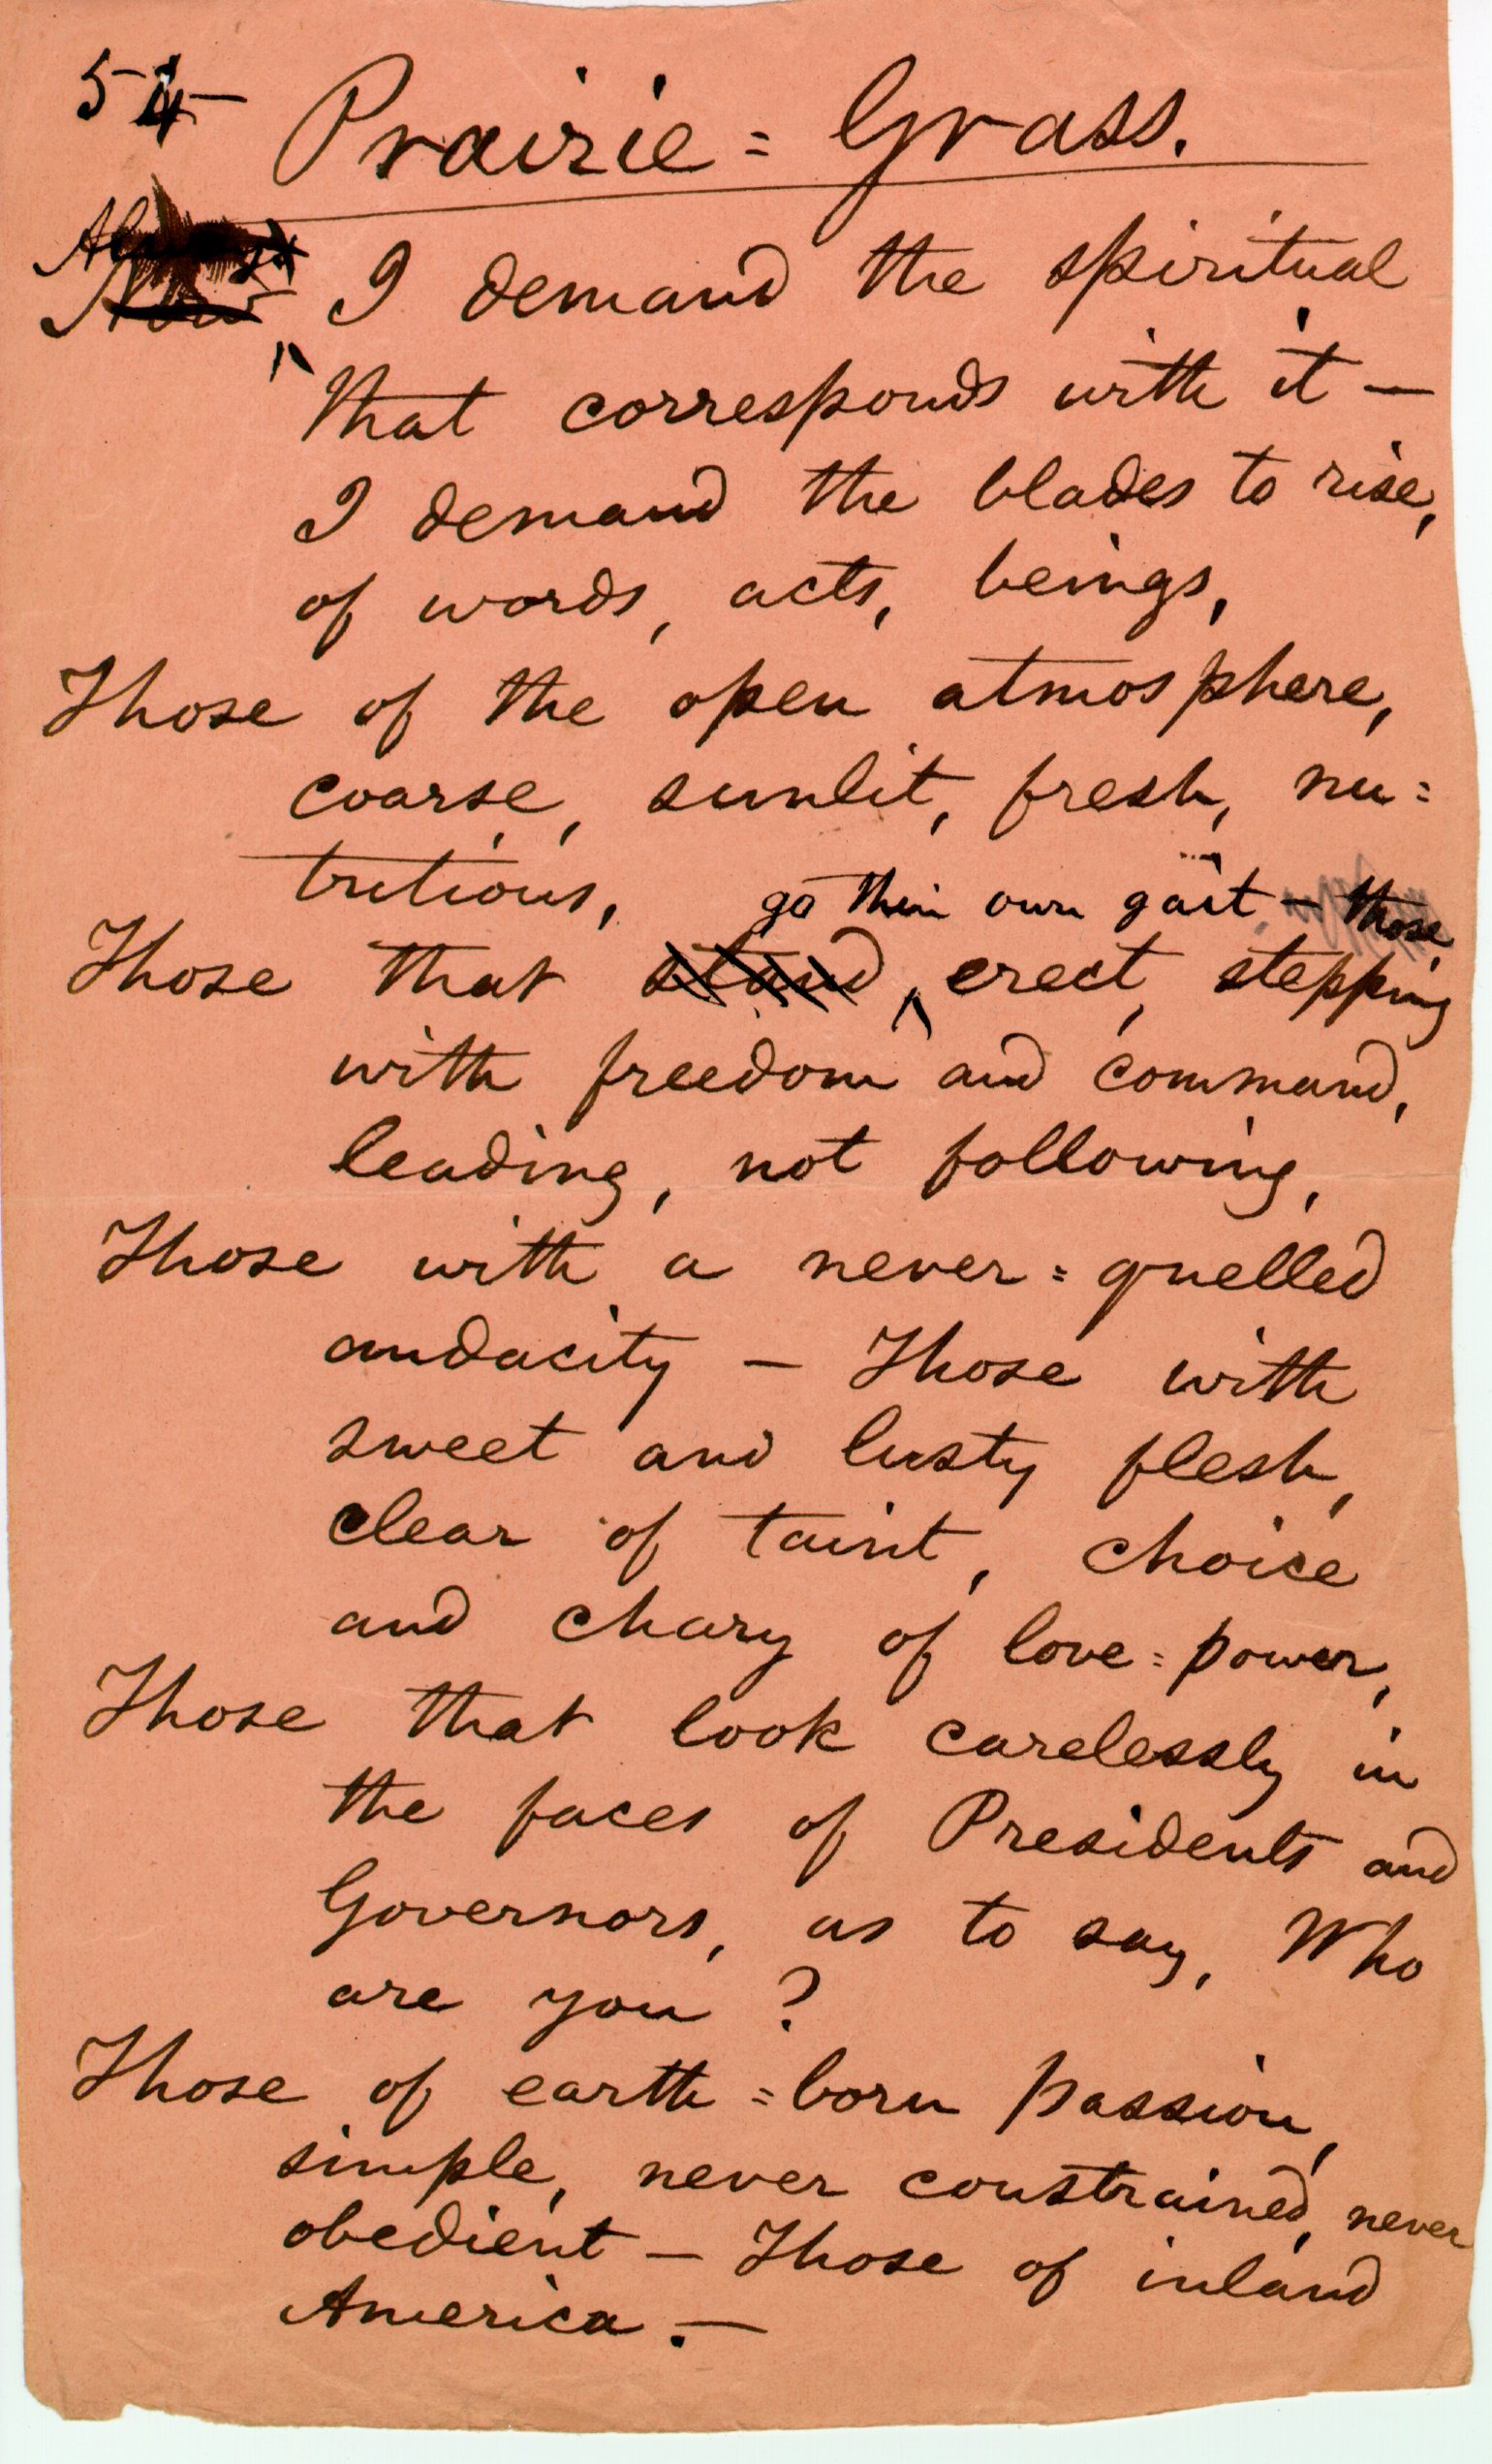 54
Prairie=Grass.
I demand the spiritual
that corresponds with it —
I demand the blades to rise,
of words, acts, beings,
Those of the open atmosphere,
coarse, sunlit, fresh, nu=
tritious,
go their own gait — those
Those that stand, erect, stepping
with freedom and command,
leading, not following,
Those with a never=quelled
audacity — Those with
sweet and lusty flesh,
clear of taint, choice
and chary of love=power,
Those that look carelessly in
the faces of Presidents and
Governors, as to say, Who
are you?
Those of earth=born passion,
simple, never constrained, never
obedient — Those of inland
America.—